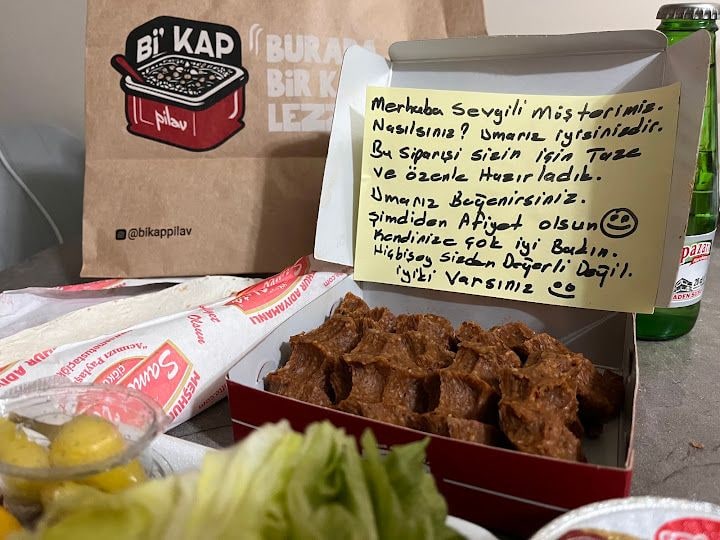 Bi' KAP
pilav
BURADA
BİR K
LEZZ
@bikappilav
Merhaba Sevgili Müşterimiz.
Nasılsınız? Umarız iyisinizdir.
Bu Siparişi Sizin için Taze
ve özenle Hazırladık.
Umarız Beğenirsiniz.
Şimdiden Afiyet olsun
Kendinize çok iyi Bakın.
Hiçbişey Sizden Değerli Değil.
iyiki Varsınız
ADIYAMANLI
Afiyet Olsun
MEŞHUR
"Acımızı Paylaşıyoruz"
HUR ADIYA